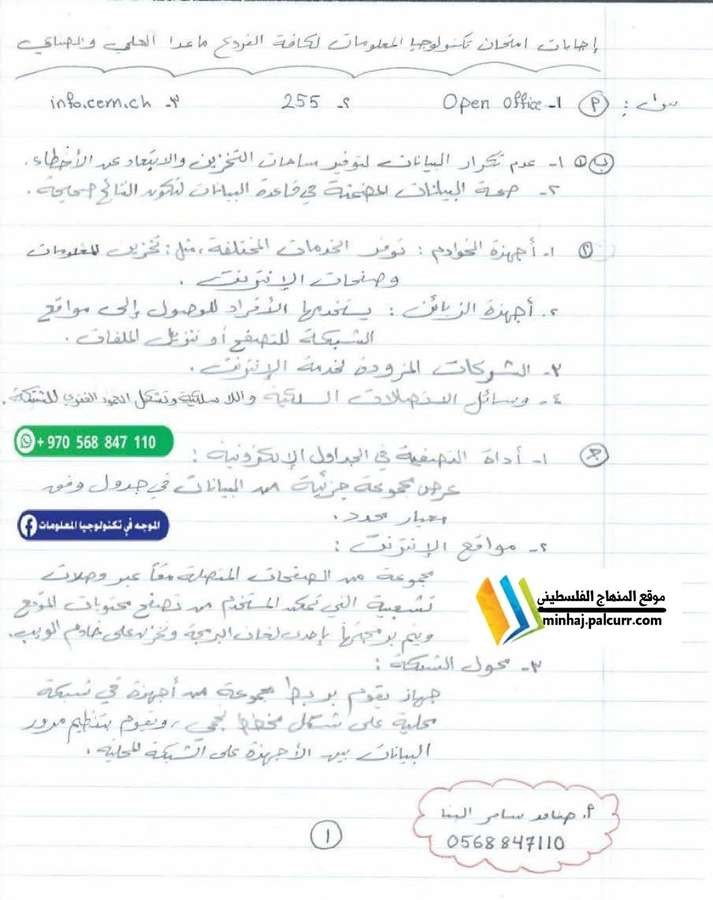 إجابات امتحان تكنولوجيا المعلومات لكافة الفروع ما عدا العلمي والصناعي
س1: أ) 1- Open office 2- 255 3- info.cern.ch
ب) 1) 1- عدم تكرار البيانات لتوفير ساحات التخزين والابتعاد عن الأخطاء.
2- صحة البيانات المضمنة في قاعدة البيانات لتكون النتائج صحيحة.
2) 1- أجهزة الخوادم: توفر الخدمات المختلفة، مثل: تخزين المعلومات
وصفحات الإنترنت.
2- أجهزة الزبائن: يستخدمها الأفراد للوصول إلى مواقع
الشبكة للتصفح أو تنزيل الملفات.
3- الشركات المزودة لخدمة الإنترنت.
4- وسائل الاتصالات السلكية واللاسلكية وتشكل العمود الفقري للشبكة.
+ 970 568 847 110
ج) 1- أداة التصفية في الجداول الإلكترونية:
عرض مجموعة جزئية من البيانات في جدول وفق
معيار محدد.
الموجه في تكنولوجيا المعلومات
2- مواقع الإنترنت:
مجموعة من الصفحات المتصلة معاً عبر وصلات
تشعبية التي تمكن المستخدم من تصفح محتويات الموقع
ويتم برمجتها بإحدى لغات البرمجة وتخزن على خادم الويب.
موقع المنهاج الفلسطيني
minhaj.palcurr.com
3- محول الشبكة:
جهاز يقوم بربط مجموعة من أجهزة في شبكة
محلية على شكل مخطط نجمي، ويقوم بتنظيم مرور
البيانات بين الأجهزة على الشبكة المحلية.
أ. صامد سامر البنا
0568847110
1